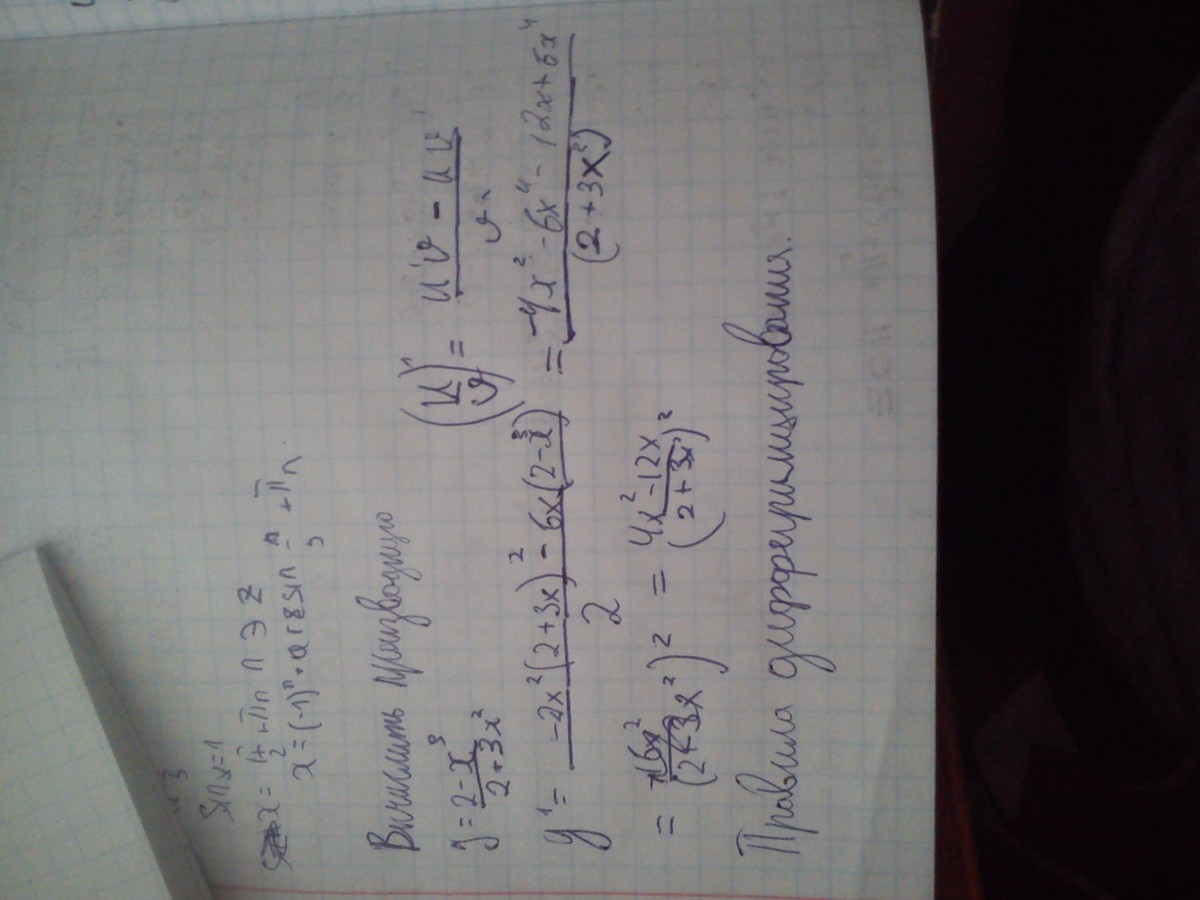 sin x = 1
x = π/2 + πn n ∋ Z
x = (-1)ⁿ • arcsin + πn
Вычислить производную
y = (2 - x³)/(2 + 3x²) (u/v)' = (u'v - uv')/v²
y' = (-2x²(2 + 3x)² - 6x(2 - x³))/2 = (-4x² - 6x⁴ - 12x + 6x⁴)/(2 + 3x²)
= 16x²/(2 + 3x²)² = (4x² - 12x)/(2 + 3x²)²
Правила дифференцирования.